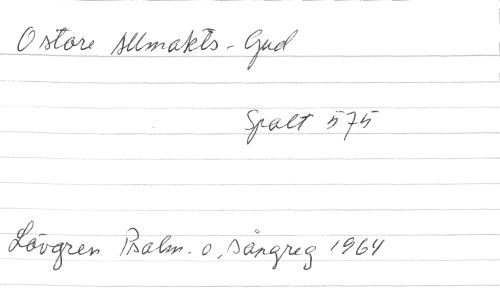 O store Allmakts-Gud
Spalt 575
Lövgren Psalm. o. sångreg 1964